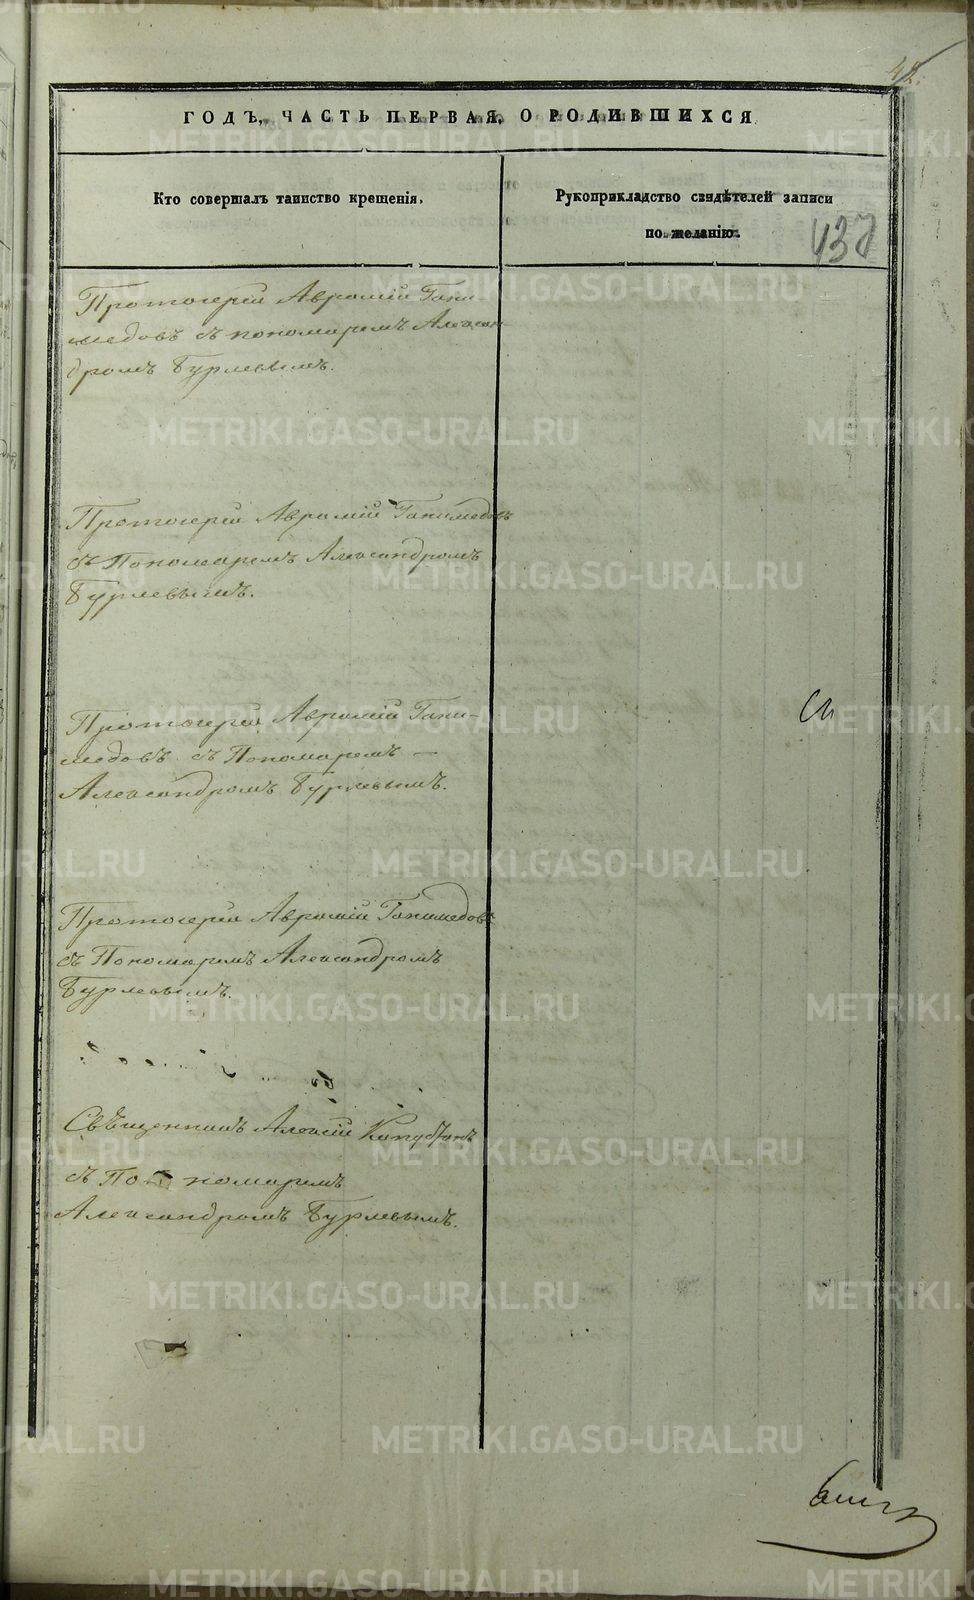 42.
ГОДЪ, ЧАСТЬ ПЕРВАЯ, О РОДИВШИХСЯ
Кто совершалъ таинство крещенія.
Рукоприкладство свидѣтелей записи
по желанію.
437
Протоіерей Аврамій Гани-
медовъ съ пономаремъ Алексан-
дромъ Бурлевымъ.
Протоіерей Аврамій Ганимедовъ
съ Пономаремъ Александромъ
Бурлевымъ.
Протоіерей Аврамій Гани-
медовъ съ Пономаремъ —
Александромъ Бурлевымъ.
Протоіерей Аврамій Ганимедовъ
съ Пономаремъ Александромъ
Бурлевымъ.
Священникъ Алексій Капустинъ
съ По номаремъ
Александромъ Бурлевымъ.
METRIKI.GASO-URAL.RU